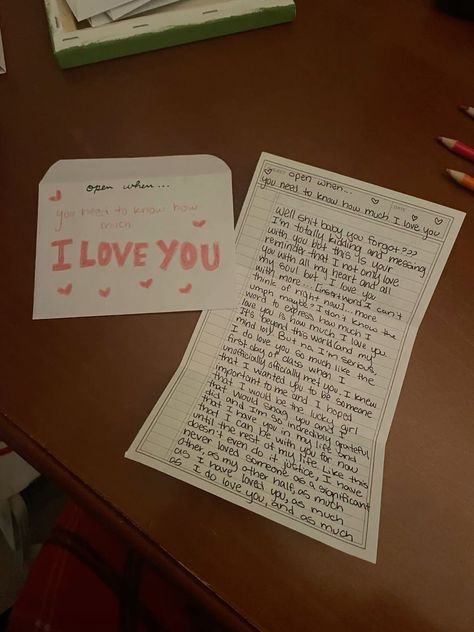 open when...
you need to know how
much
I LOVE YOU
open when...
DATE
you need to know how much I love you
Well shit baby you forgot???
I'm totally kidding and messing
with you but this is your
reminder that I not only love
you with all my heart and all
my soul but I love you
with more... [insert word I can't
think of right now]... more
umph maybe? I don't know the
word to express how much I
love you is how much I love you.
It's beyond this world and my
mind lol! But no, I'm serious,
I do love you so much like the
first day of class when I
unofficially officially met you. I knew
that I wanted you to be someone
important to me and I hoped
that I would be the lucky girl
that would snag you and I
did and I'm so incredibly grateful
that I have you in my life and
that I can be with you for now
until the rest of my life. Like this
doesn't even do it justice, I have
never loved someone as a significant
other, as my other half, as much
as I have loved you, as much
as I do love you, and as much